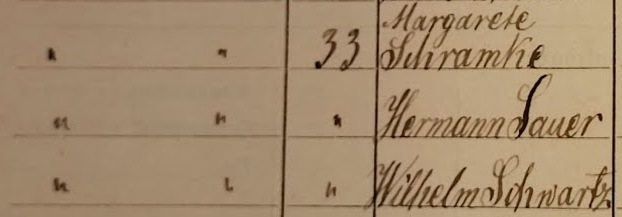 Margarete
" " 33 Schramke
" " " Hermann Sauer
" " " Wilhelm Schwartz